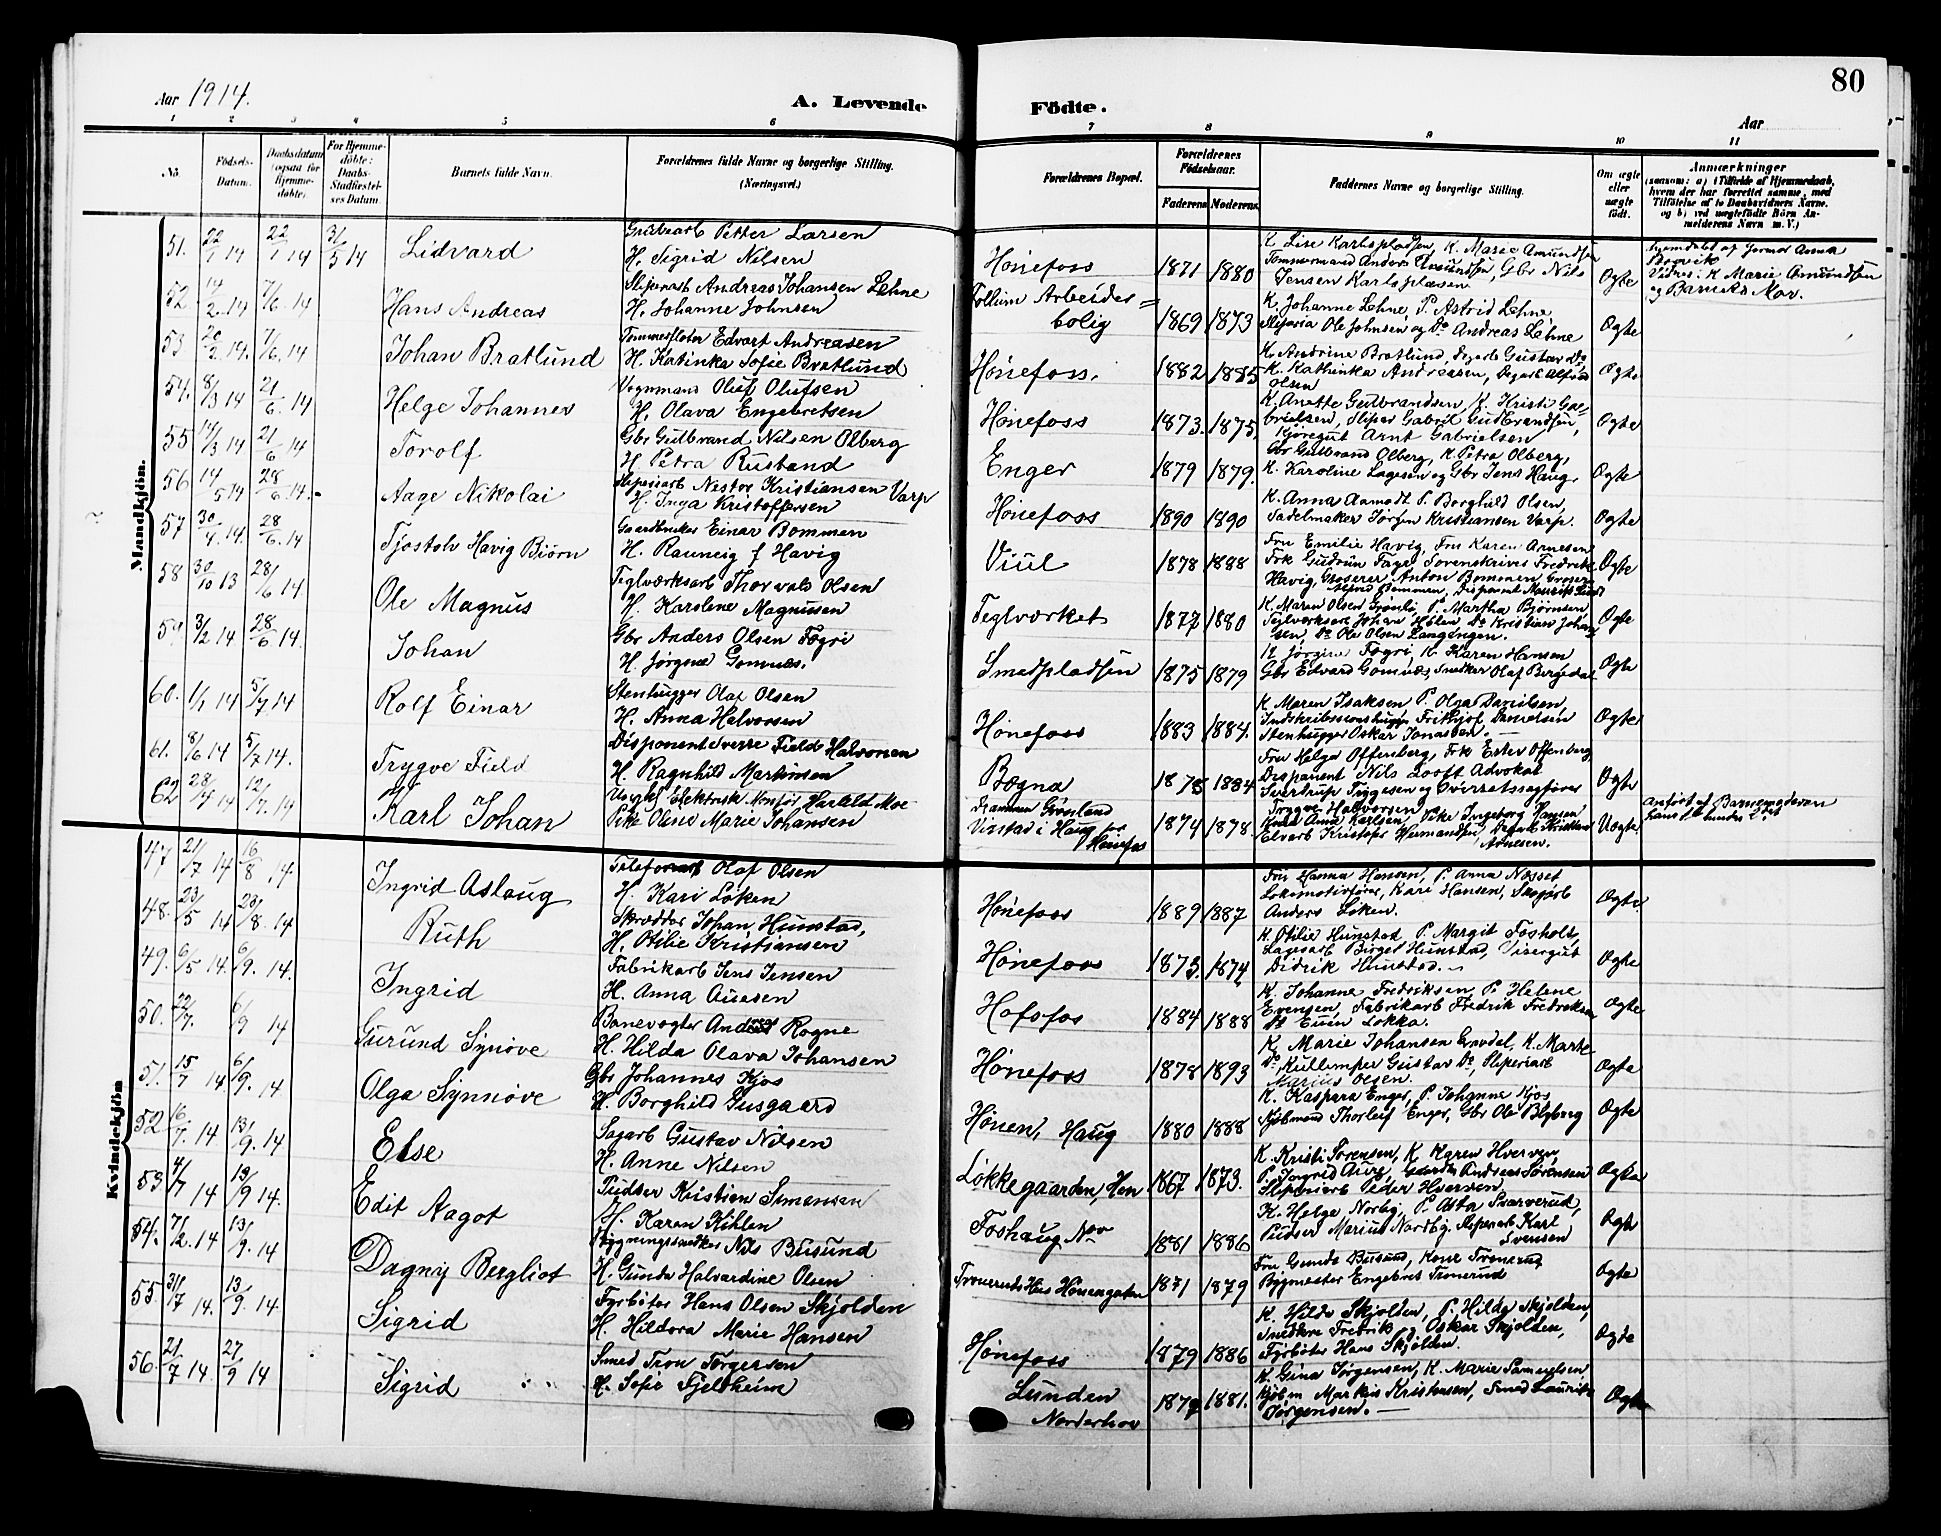 80
Aar 1914.
A. Levende
Födte.
Aar
1 2 3 4 5 6
7 8 9 10 11
No.
Födsels-Datum.
Daabsdatum (ogsaa for Hjemmedøbte).
For Hjemmedöbte: Daabs-Stadfæstelses Datum.
Barnets fulde Navn.
Forældrenes fulde Navne og borgerlige Stilling.
(Næringsvei.)
Forældrenes Bopæl.
Forældrenes Födselsaar.
Faderens Moderens
Faddernes Navne og borgerlige Stilling.
Om ægte eller uægte födt.
Anmærkninger
(saasom: a) i Tilfælde af Hjemmedaab, hvem der har forrettet samme, med Tilföielse af to Daabsvidners Navne, og b) ved uægtefödte Börn Anmelderens Navn m. V.)
Mandkjön.
51. 22/1 14 22/1 14 31/5 14 Lidvard
Petter Larsen
H. Sigrid Nilsen
Hønefoss 1871 1880
K. Lise Karlspladsen, K. Marie Amundsen
Tømmermand Anders Amundsen, Gbr Nils
Jensen Karlsplassen
Ægte
Hjemdøbt af Jormor Anna
Vidner: K Marie Amundsen
og Barnets Mor.
52 14/2 14 7/6 14 Hans Andreas
Sliperiarb Andreas Johansen Lehne
H. Johanne Johnsen
Follum Arbeider=
bolig 1869 1873
K. Johanne Lehne, P. Astrid Lehne,
Sliperia Ole Johnsen og Do Andreas Lehne
Ægte
53 20/2 14. 7/6 14 Johan Bratlund
Edvart Andreasen
H. Katinka Sofie Bratlund
Hønefoss. 1882 1885
K. Andrine Bratlund, Gustav Do,
K. Kathinka Andreasen, Alfred
Olsen
Ægte
54. 8/3 14 21/6 14 Helge Johannes
Vognmand Oluf Olufsen
H. Olava Engebretsen
Hønefoss 1873. 1875.
K. Anette Gulbrandsen, K. Kristi Ga=
brielsen, Sliper Gabriel Gudbrandsen,
Kjøregut Arnt Gabrielsen
Ægte
55 14/3 14 21/6 14 Torolf
Gbr Gulbrand Nilsen Olberg
H Petra Rustand
Enger 1879 1879.
Gbr Gulbrand Olberg, K. Petra Olberg,
K. Karoline Lagesen og Gbr Jens Haug,
Ægte
56 14/5 14 28/6 14. Aage Nikolai
Sliperiarb Nestor Kristiansen Varp
H. Inga Kristoffersen
Hønefoss 1890 1890
K. Anna Aamodt P. Borghild Olsen,
Sadelmaker Jørgen Kristiansen Varp.
Ægte
57 30/4 14. 28/6 14 Tjostolv Havig Biørn
Gaardbruker Einar Bommen
H. Rauneig f Havig
Viul 1878 1888
Fru Emilie Havig, Fru Karen Arnesen
Frk Gudrun Fage Sorenskriver Fredrik
Havig, Groserer Anton Bommen,
Ægte
58 30/10 13 28/6 14 Ole Magnus
Teglværksarb Thorvald Olsen
H. Karolene Magnussen
Teglværket 1877 1880
K. Maren Olsen Grønli, P. Martha Bjørnsen,
Teglværksarb Johan Holen Do Kristian Johan=
sen, Do Ole Olsen
Ægte
59 3/2 14 28/6 14. Johan
Gbr Anders Olsen Fogri
H. Jørgine Gomnæs.
Smedpladsen 1875 1879
K. Jørgine Fogri K. Karen Hansen
Gbr Edvard Gomnæs, Snedker Olaf
Ægte
60. 1/1 14 5/7 14 Rolf Einar
Stenhugger Olaf Olsen
H. Anna Halvorsen
Hønefoss 1883 1884.
K. Maren Isaksen P. Olga Danielsen,
Frithjof Danielsen
Stenhugger Oskar Jonassen.
Ægte
61. 8/6 14 5/7 14. Trygve Field
Disponent Sverre Field Halvorsen
H. Ragnhild Martinsen
Bægna 1878 1884
Fru Helga Offenberg, Frk Ester Offenberg
Disponent Nils Looft Advokat
Svertrup Trygesen og Overretssagfører
Trygve Halvorsen
Ægte
62 28/4 14 12/7. 14 Karl Johan
Ungk. Elektrisk Montør Harald Moe
Pike Oline Marie Johansen
Drammen Grønland
i Haug
Hønefos 1874 1878
Anna Karlsen, Pike Ingeborg Hansen
Kristofer
Arnesen.
Uægte
Kvindekjön
47 21/7 14 16/8 14. Ingrid Aslaug
Olaf Olsen
H. Kari Løken
Hønefoss 1889 1887
Fru Hanna Hansen, P. Anna Næsset
Lokomotivfører, Kari Hansen,
Anders Løken.
Ægte
48. 23/5 14 23/8 14 Ruth
Skrædder Johan Hunstad,
H. Otilie Kristiansen
Hønefoss 1873. 1874
K. Otilie Hunstad P. Margit Fosholt,
Birger Hunstad, Visergut
Didrik Hunstad.
Ægte
49. 6/5 14. 6/9. 14. Ingrid
Fabrikarb Jens Jensen
H. Anna
Hofsfos 1884 1888
K. Johanne Fredriksen, P. Helene
Evensen, Fabrikarb Fredrik Fredriksen
Do Løkka.
Ægte
50. 22/7. 6/9 14 Gurund Synøve
Banevogter Rogne
H. Hilda Olava Johansen
Hønefoss 1878 1893
K. Marie Johansen K. Marte
Do, Gustav Do, Sliperiarb
Marius Olsen.
Ægte
51. 15/7 14 6/9. 14 Olga Synnøve
Gbr Johannes Kjos
H. Borghild Gusgaard
Hønen, Haug 1880 1888
K. Kaspara Enger, P. Johanne Kjos
Thorleif Enger, Gbr Ole
Ægte
52 16/7. 14 13/9. 14 Else
Sagarb Gustav Nilsen
H. Anne Nilsen
Løkkegaarden, Hen 1867 1873.
K. Kristi Sørensen, K Karen Hverven,
P. Ingrid Andreas Sørensen
Sliperiarb Peder Hverven
Ægte
53. 4/7 14 13/9 14. Edit Aagot
Pudser Kristian Simensen
H. Karen Kihlen
Foshaug 1881 1886
K. Helge Norby, P. Asta
Pudser Marius Nordby, Sliperiarb Karl
Svensen
Ægte
54. 7/2. 14 13/9. 14 Dagny Bergliot
Bygningssnedker Nils Busund
H. Gunda Halvardine Olsen
Hus Hønengaten 1871 1879
Fru Gunda Busund, Kone Tronerud
Bygmester Engebret Tronerud
Ægte
55. 31/7 14. 13/9. 14. Sigrid
Fyrbøter Hans Olsen Skjolden
H. Hildora Marie Hansen
Hønefoss 1879 1886
K. Hilda Skjolden, P. Hilda Skjolden,
Snedkere Fredrik og Oskar Skjolden,
Fyrbøter Hans Skjolden.
Ægte
56. 21/7 14 27/9 14 Sigrid
Smed Tron Torgersen
H. Sofie Fjeldheim
Lunden
Norderhov 1879 1881.
K. Gina Jørgensen, K. Marie Samuelsen
Markus Kristensen, Smed Laurits
Jørgensen.
Ægte